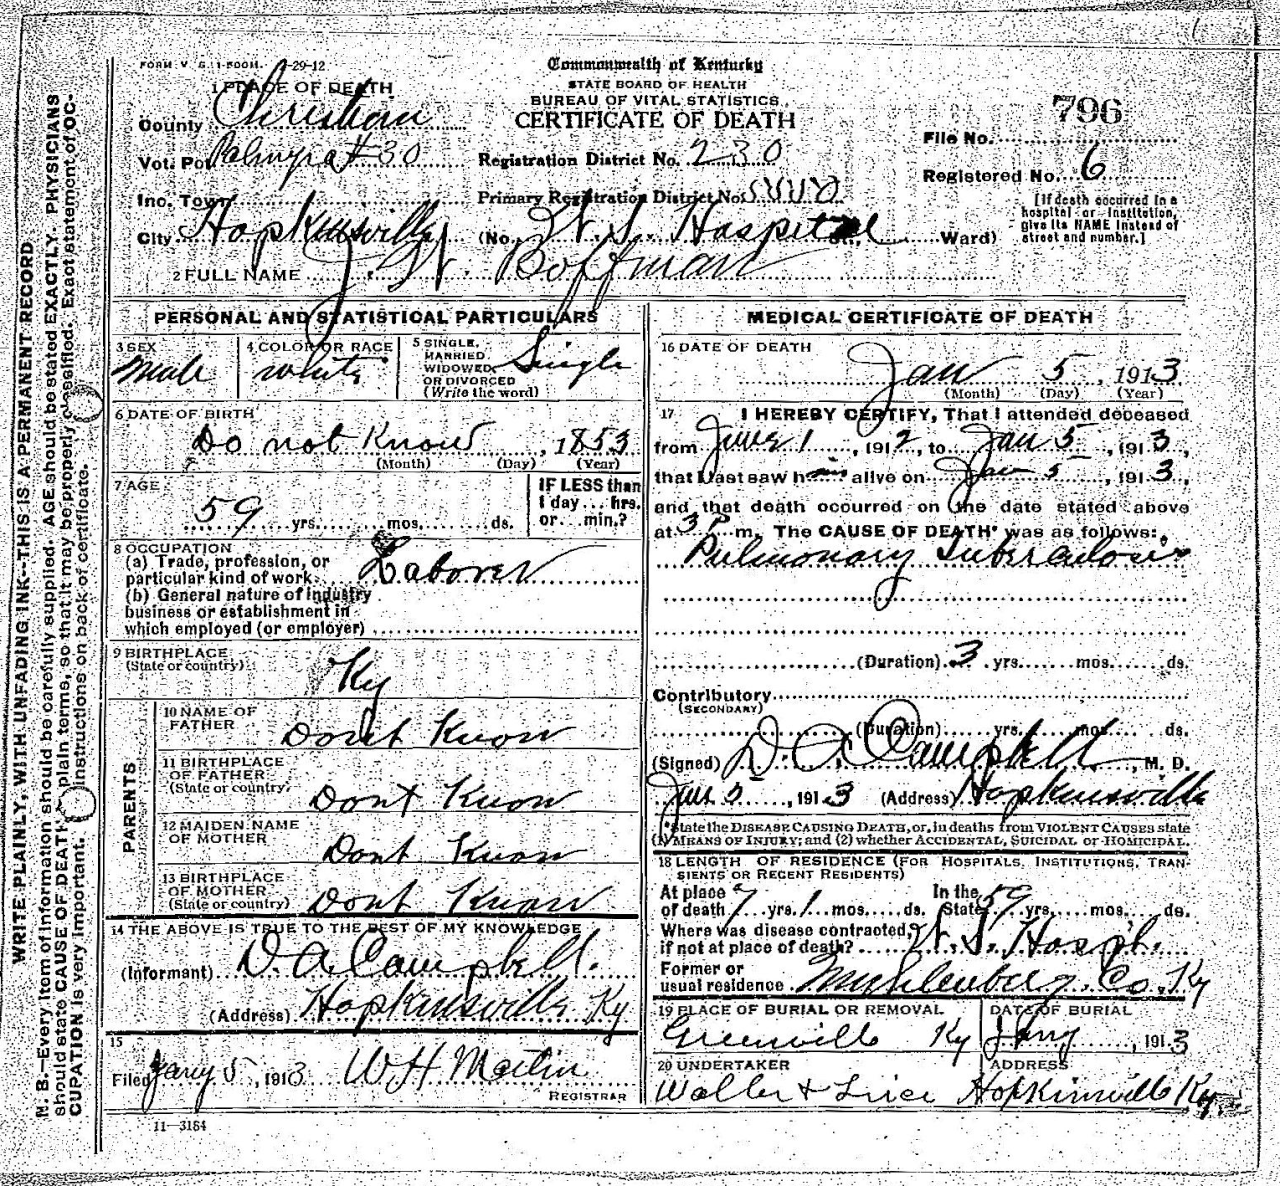 FORM V. S. 1-500M. 2-29-12
Commonwealth of Kentucky
STATE BOARD OF HEALTH
BUREAU OF VITAL STATISTICS.
CERTIFICATE OF DEATH
796
File No.
Registered No. 6
[If death occurred in a hospital or institution, give its NAME instead of street and number.]
1 PLACE OF DEATH
County Christian
Vot. Pct. Palmyra #30
Registration District No. 230
Inc. Town
Primary Registration District No.
City Hopkinsville (No. W. S. Hospital St., Ward)
2 FULL NAME J. W. Boffman
PERSONAL AND STATISTICAL PARTICULARS
3 SEX male
4 COLOR OR RACE white
5 SINGLE, MARRIED, WIDOWED, OR DIVORCED (Write the word) Single
6 DATE OF BIRTH
Do not Know, 1853
(Month) (Day) (Year)
7 AGE
59 yrs. mos. ds.
IF LESS than 1 day... hrs. or... min.?
8 OCCUPATION
(a) Trade, profession, or
particular kind of work. Laborer
(b) General nature of industry
business or establishment in
which employed (or employer)
9 BIRTHPLACE
(State or country) Ky
PARENTS
10 NAME OF FATHER Dont Know
11 BIRTHPLACE OF FATHER (State or country) Dont Know
12 MAIDEN NAME OF MOTHER Dont Know
13 BIRTHPLACE OF MOTHER (State or country) Dont Know
14 THE ABOVE IS TRUE TO THE BEST OF MY KNOWLEDGE
(Informant) D. A. Campbell.
(Address) Hopkinsville Ky
15
Filed Jany 5, 1913 WH Martin
REGISTRAR
11—3184
MEDICAL CERTIFICATE OF DEATH
16 DATE OF DEATH
Jan 5, 1913
(Month) (Day) (Year)
17 I HEREBY CERTIFY, That I attended deceased
from June 1, 1912, to Jan 5, 1913,
that I last saw him alive on Jan 5, 1913,
and that death occurred on the date stated above
at 3 P m. The CAUSE OF DEATH* was as follows:
Pulmonary Tuberculosis
(Duration) 3 yrs. mos. ds.
Contributory
(SECONDARY)
(Duration) yrs. mos. ds.
(Signed) D. A. Campbell, M. D.
Jan 5, 1913 (Address) Hopkinsville
*State the DISEASE CAUSING DEATH, or, in deaths from VIOLENT CAUSES state
(1) MEANS OF INJURY; and (2) whether ACCIDENTAL, SUICIDAL or HOMICIDAL.
18 LENGTH OF RESIDENCE (FOR HOSPITALS, INSTITUTIONS, TRAN-
SIENTS OR RECENT RESIDENTS)
At place of death 7 yrs. 1 mos. ds. In the State 59 yrs. mos. ds.
Where was disease contracted,
if not at place of death? W. S. Hosp.
Former or
usual residence Muhlenberg. Co. Ky
19 PLACE OF BURIAL OR REMOVAL
Greenville Ky
DATE OF BURIAL
Jany, 1913
20 UNDERTAKER
Waller &
ADDRESS
Hopkinsville Ky.
WRITE PLAINLY, WITH UNFADING INK--THIS IS A PERMANENT RECORD
N. B.—Every item of information should be carefully supplied. AGE should be stated EXACTLY. PHYSICIANS
should state CAUSE OF DEATH in plain terms, so that it may be properly classified. Exact statement of OC-
CUPATION is very important. See instructions on back of certificate.